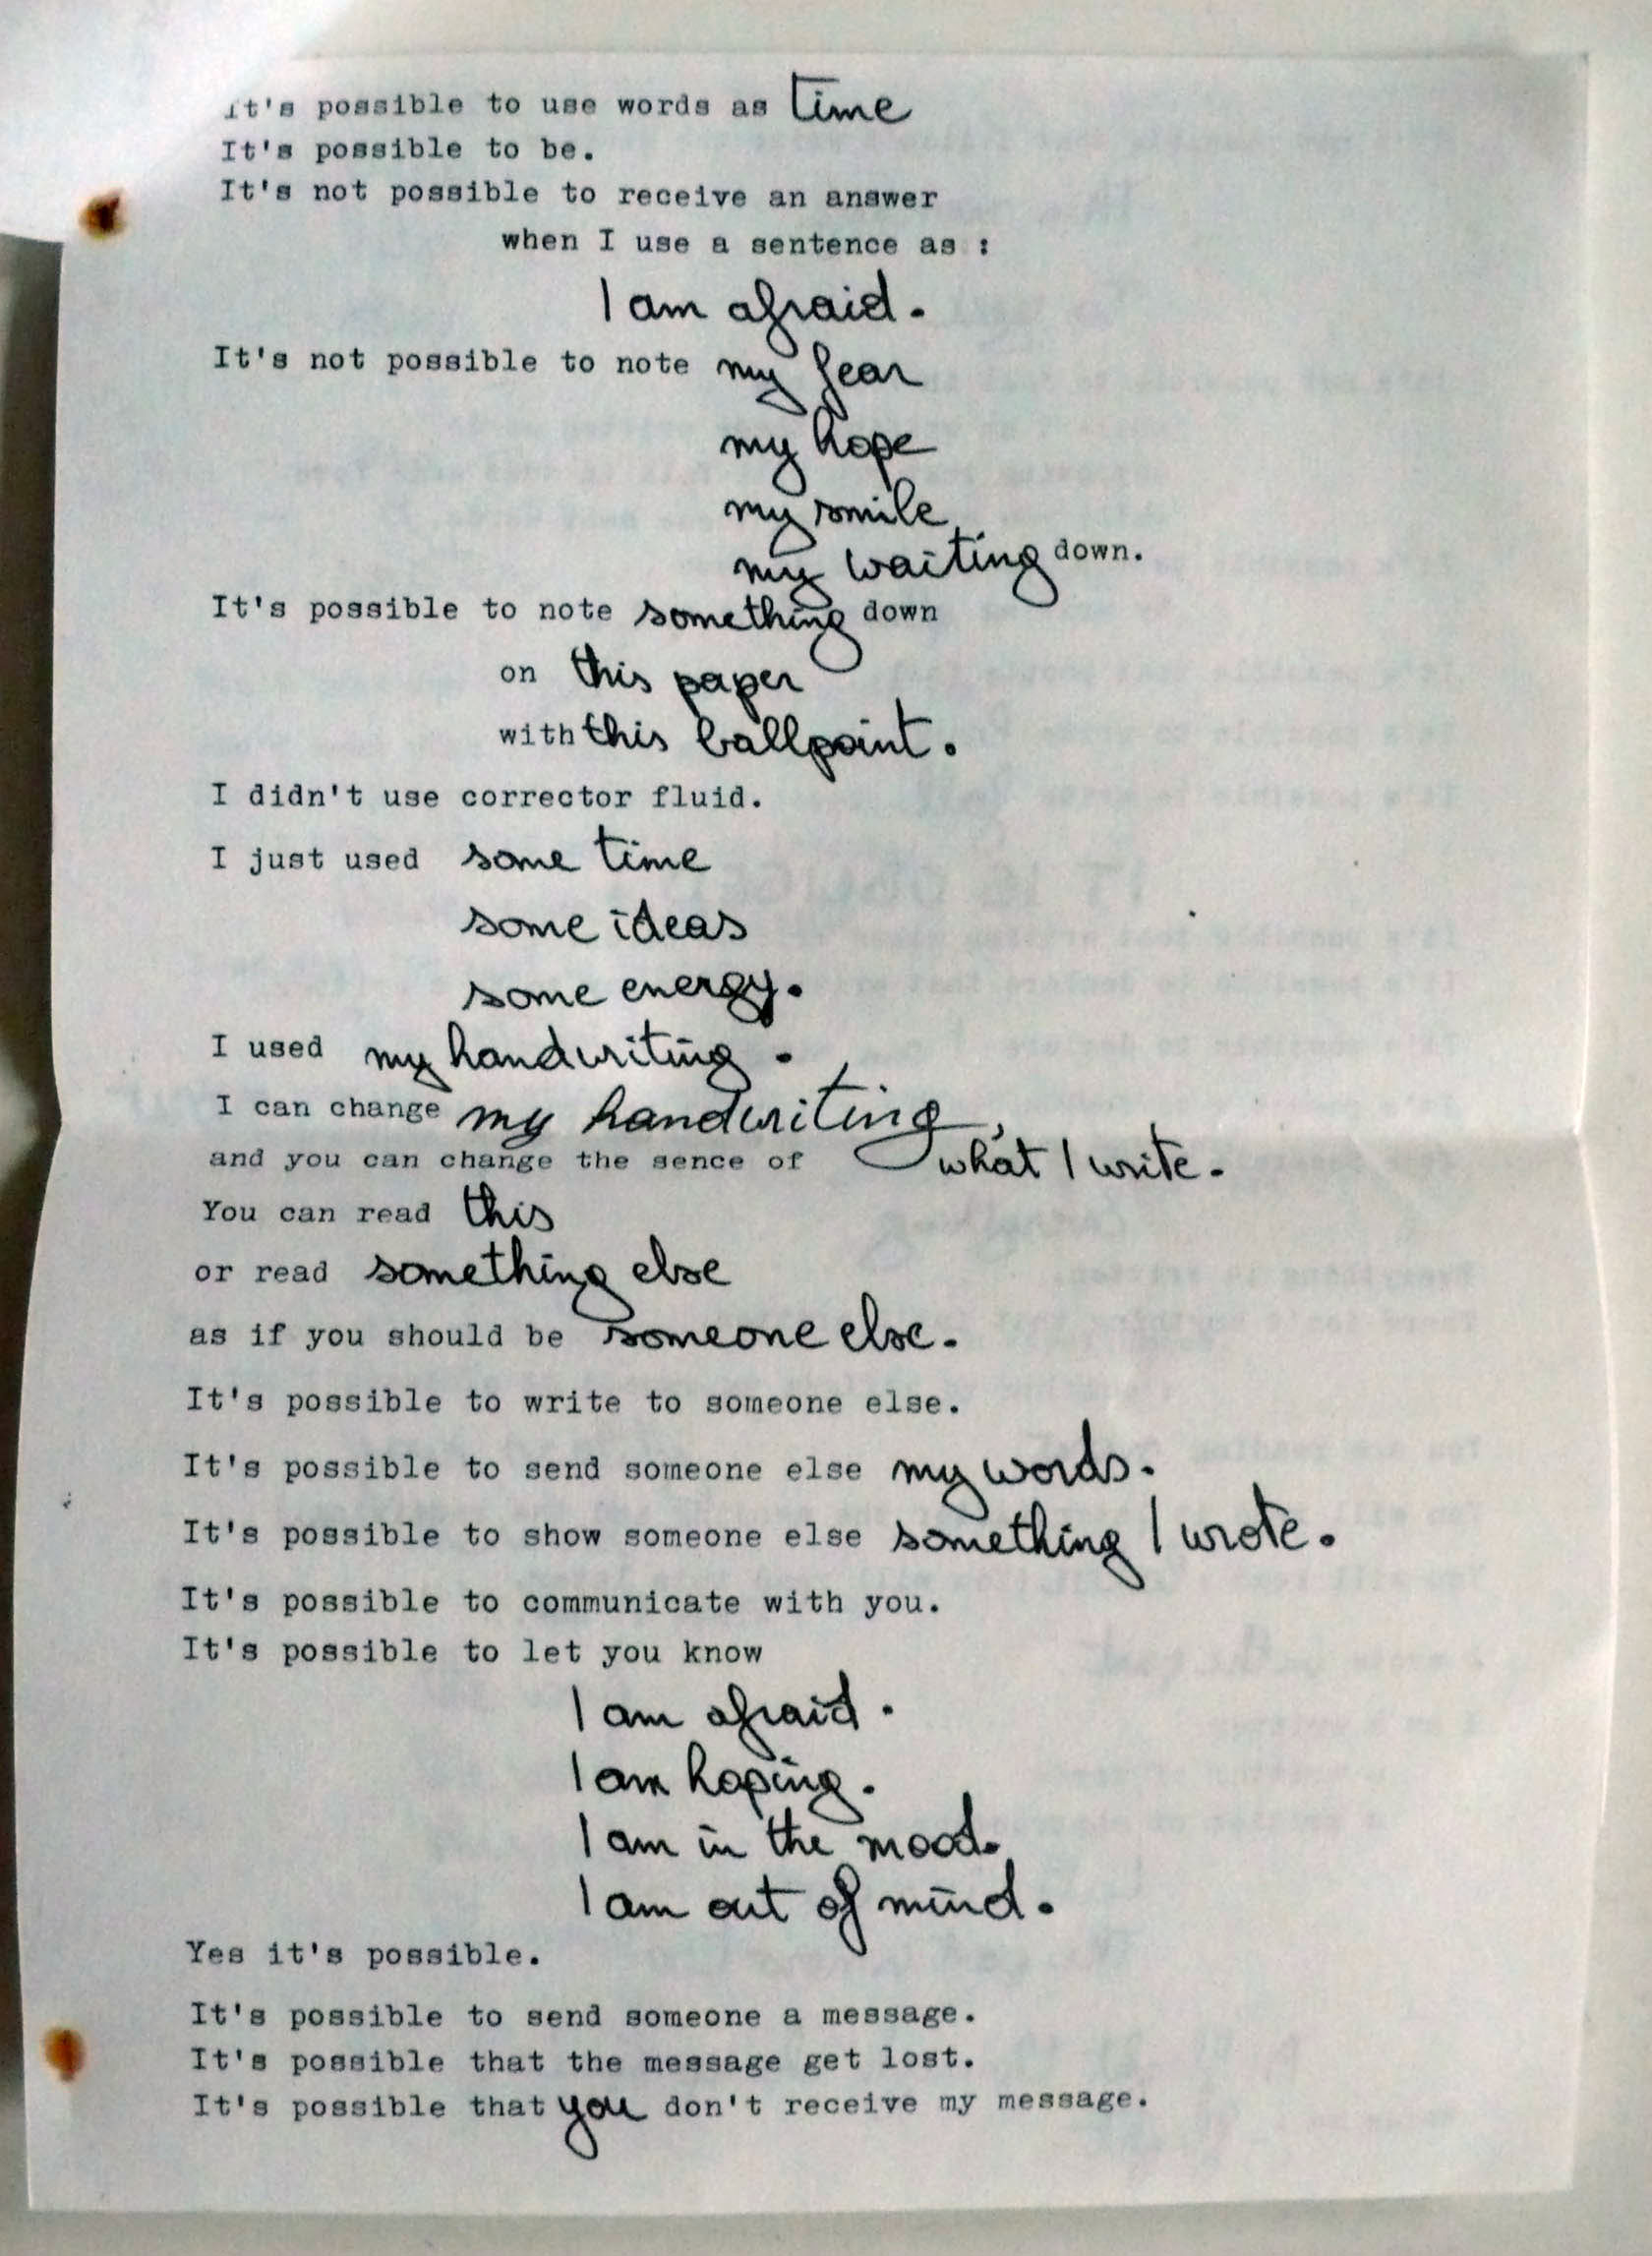 It's possible to use words as time
It's possible to be.
It's not possible to receive an answer
when I use a sentence as :
I am afraid.
It's not possible to note my fear
my hope
my smile
my waiting down.
It's possible to note something down
on this paper
with this ballpoint.
I didn't use corrector fluid.
I just used some time
some ideas
some energy.
I used my handwriting.
I can change my handwriting,
and you can change the sence of what I write.
You can read this
or read something else
as if you should be someone else.
It's possible to write to someone else.
It's possible to send someone else my words.
It's possible to show someone else something I wrote.
It's possible to communicate with you.
It's possible to let you know
I am afraid.
I am hoping.
I am in the mood.
I am out of mind.
Yes it's possible.
It's possible to send someone a message.
It's possible that the message get lost.
It's possible that you don't receive my message.